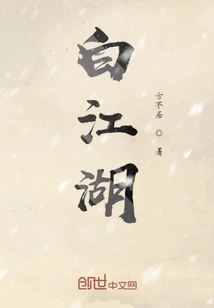 白江湖
方不居 ◎ 著
创世中文网